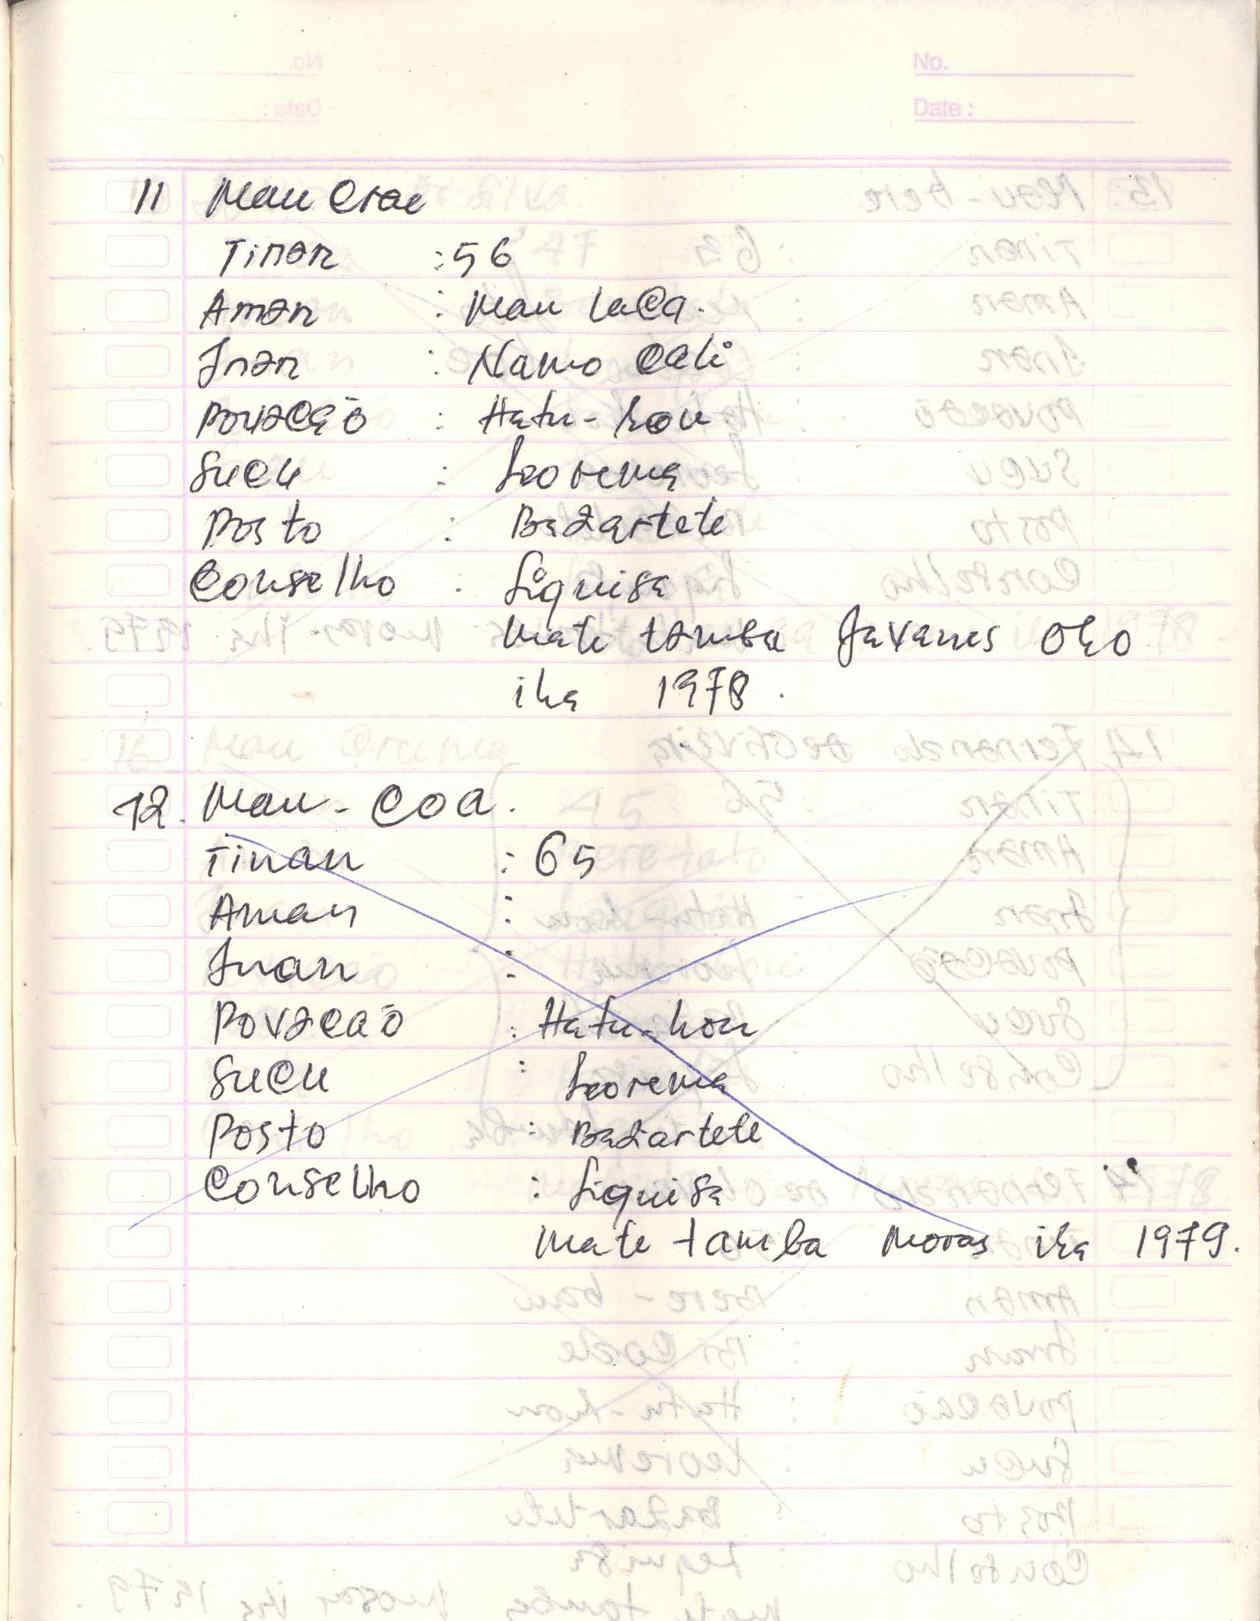 No.
Date :
11 Mau Crae
Tinan : 56
Aman : Mau laca.
Inan : Namo Cali
Povacão : Hatu-hou
Sucu : Leorema
Posto : Bazartete
Conselho : Liquisa
mate tamba Javanes oho
iha 1978.
12. Mau-Coa.
Tinan : 65
Aman :
Inan :
Povacaõ : Hatu-hou
Sucu : Leorema
Posto : Bazartete
Conselho : Liquisa
mate tamba moras iha 1979.